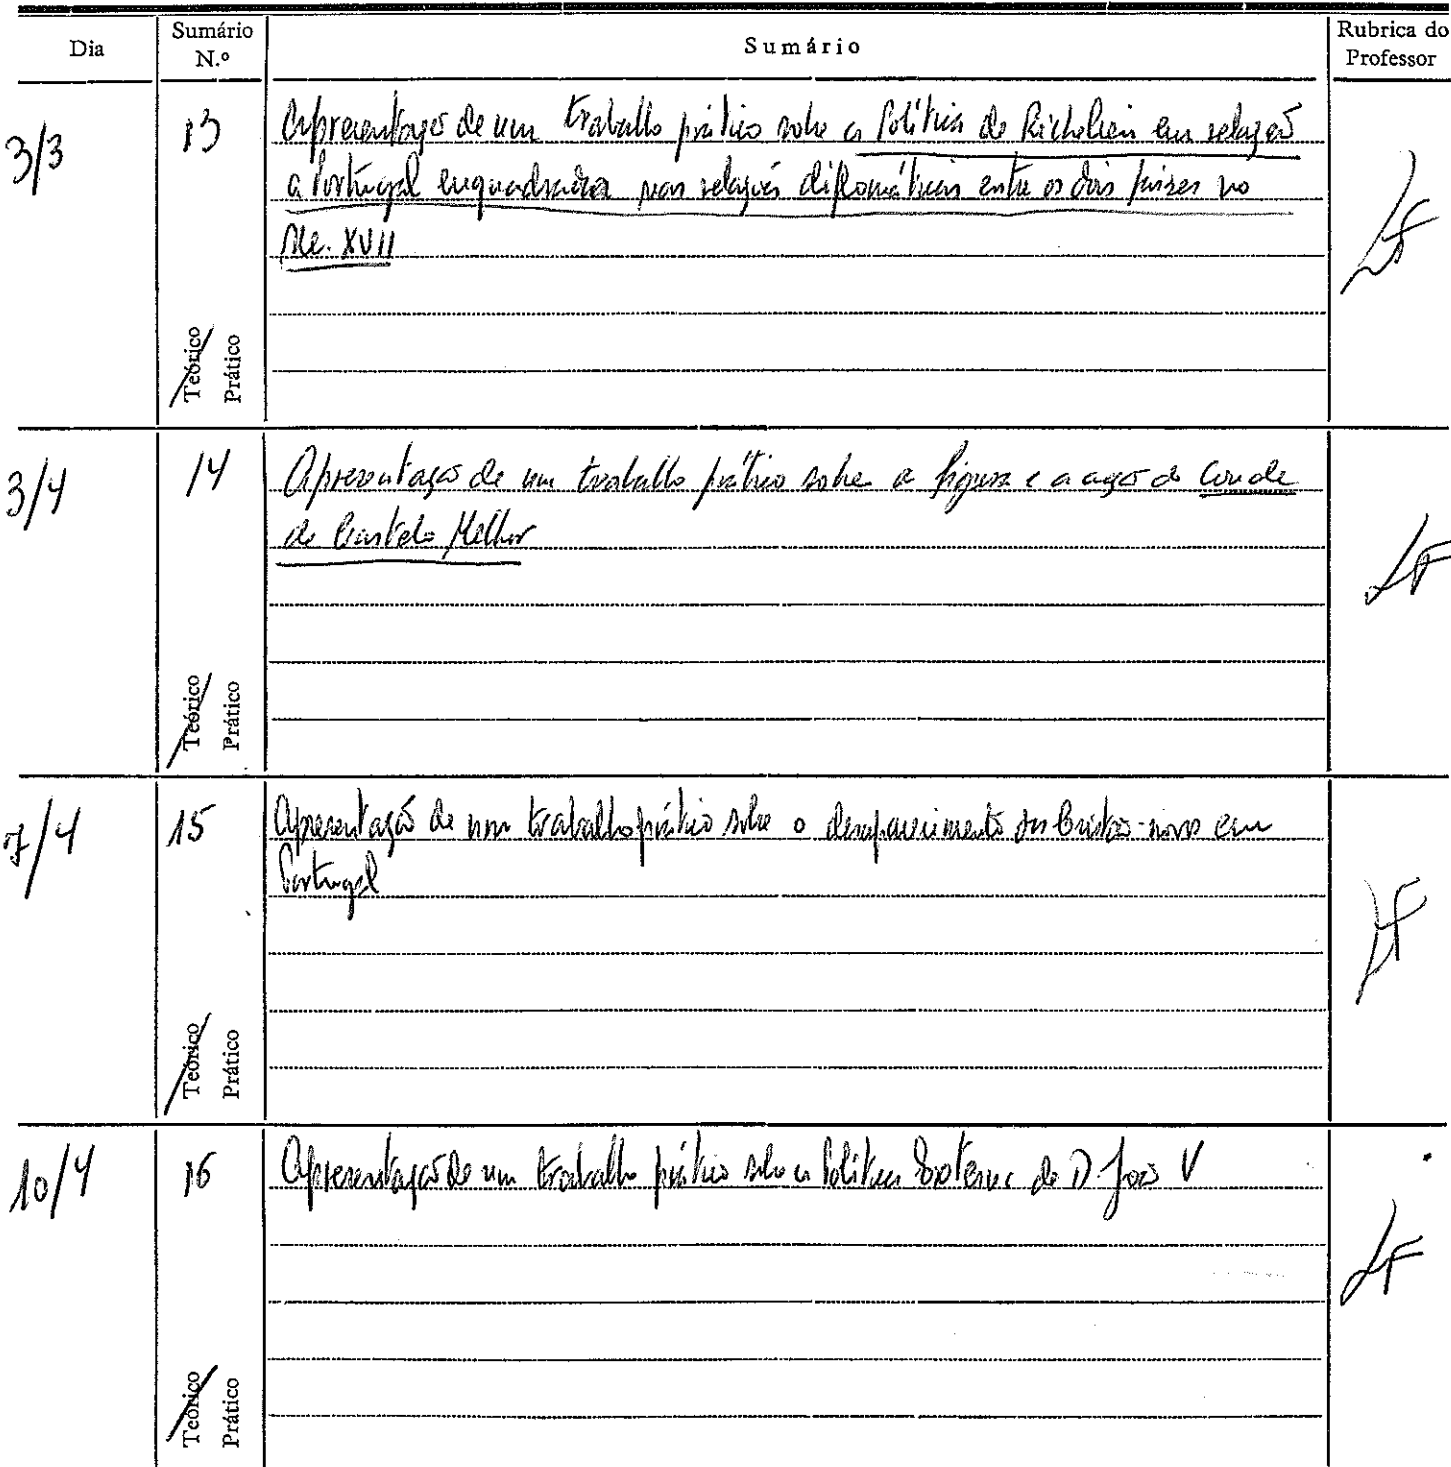 Dia
Sumário N.º
Sumário
Rubrica do Professor
3/3
13
Apresentação de um trabalho prático sobre a Política de Richelieu em relação
a Portugal enquadrada nas relações diplomáticas entre os dois países no
séc. XVII
Teórico
Prático
3/4
14
Apresentação de um trabalho prático sobre a figura e a acção do Conde
de Castelo Melhor
Teórico
Prático
7/4
15
Apresentação de um trabalho prático sobre o desaparecimento dos Cristãos-novos em
Portugal
Teórico
Prático
10/4
16
Apresentação de um trabalho prático sobre a Política Externa de D. João V
Teórico
Prático